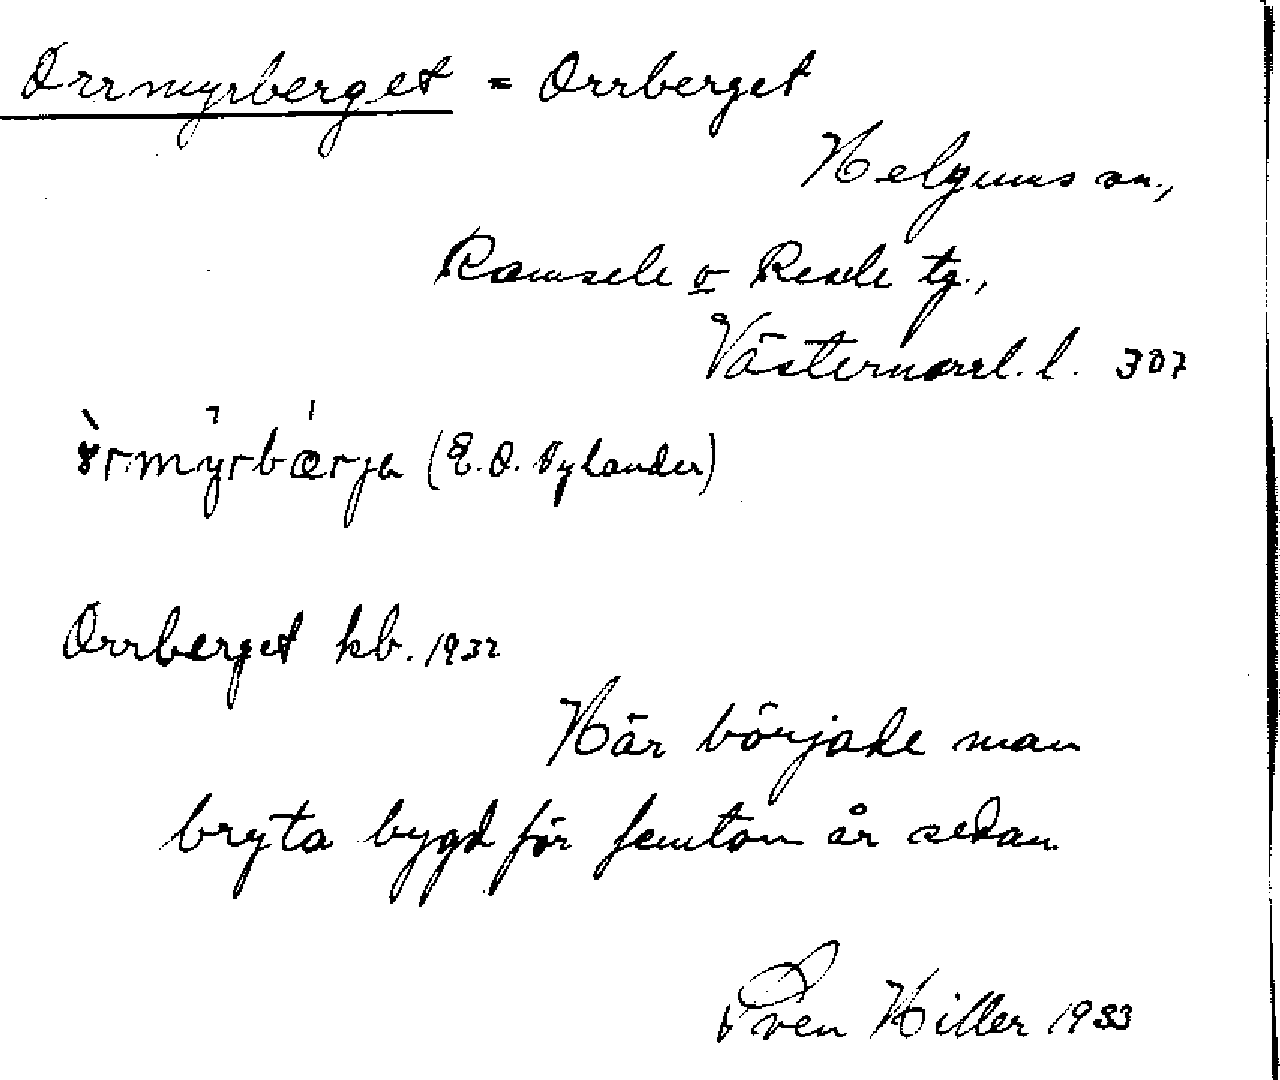 Orrmyrberget = Orrberget
Helgums sn.,
Ramsele o Resele tg.,
Västernorrl. l. 307
(E. O. Nylander)
Orrberget kb. 1932
Här började man
bryta bygd för femton år sedan
Sven Hiller 1933